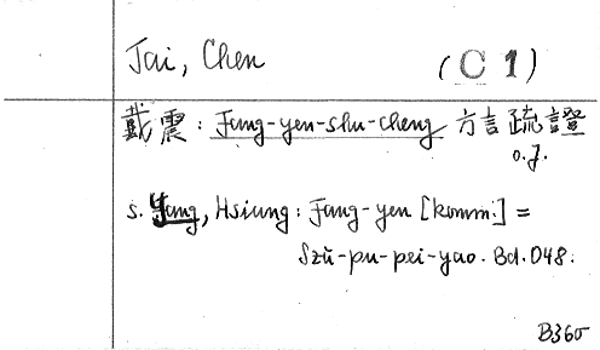 Tai, Chen (C 1)
戴震: Fang-yen-shu-cheng 方言疏證
o.J.
s. Yang, Hsiung: Fang-yen [komm.] =
Szŭ-pu-pei-yao. Bd. 048.
B360